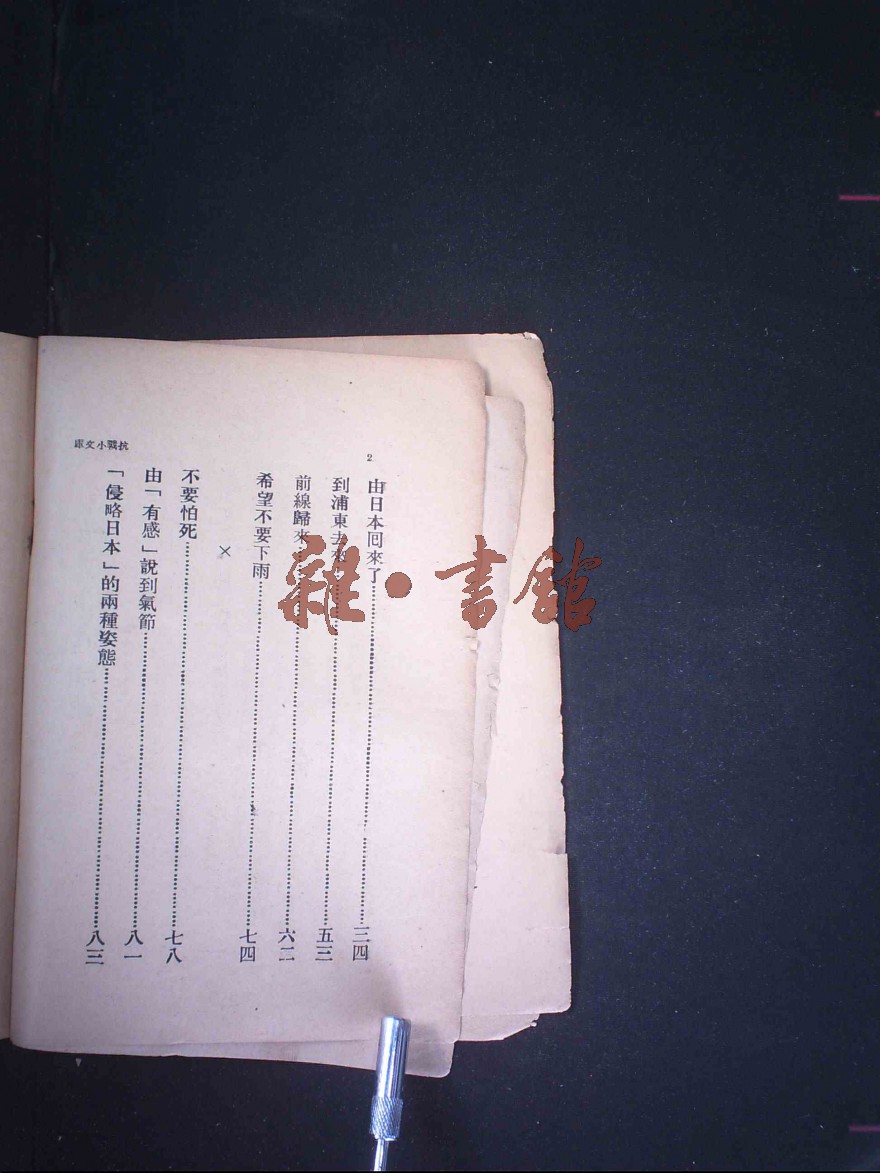 抗戰小文庫
2
由日本回來了……三四
到浦東去來……五三
前線歸來……六二
希望不要下雨……七四
×
不要怕死……七八
由「有感」說到氣節……八一
「侵略日本」的兩種姿態……八三
雜·書館